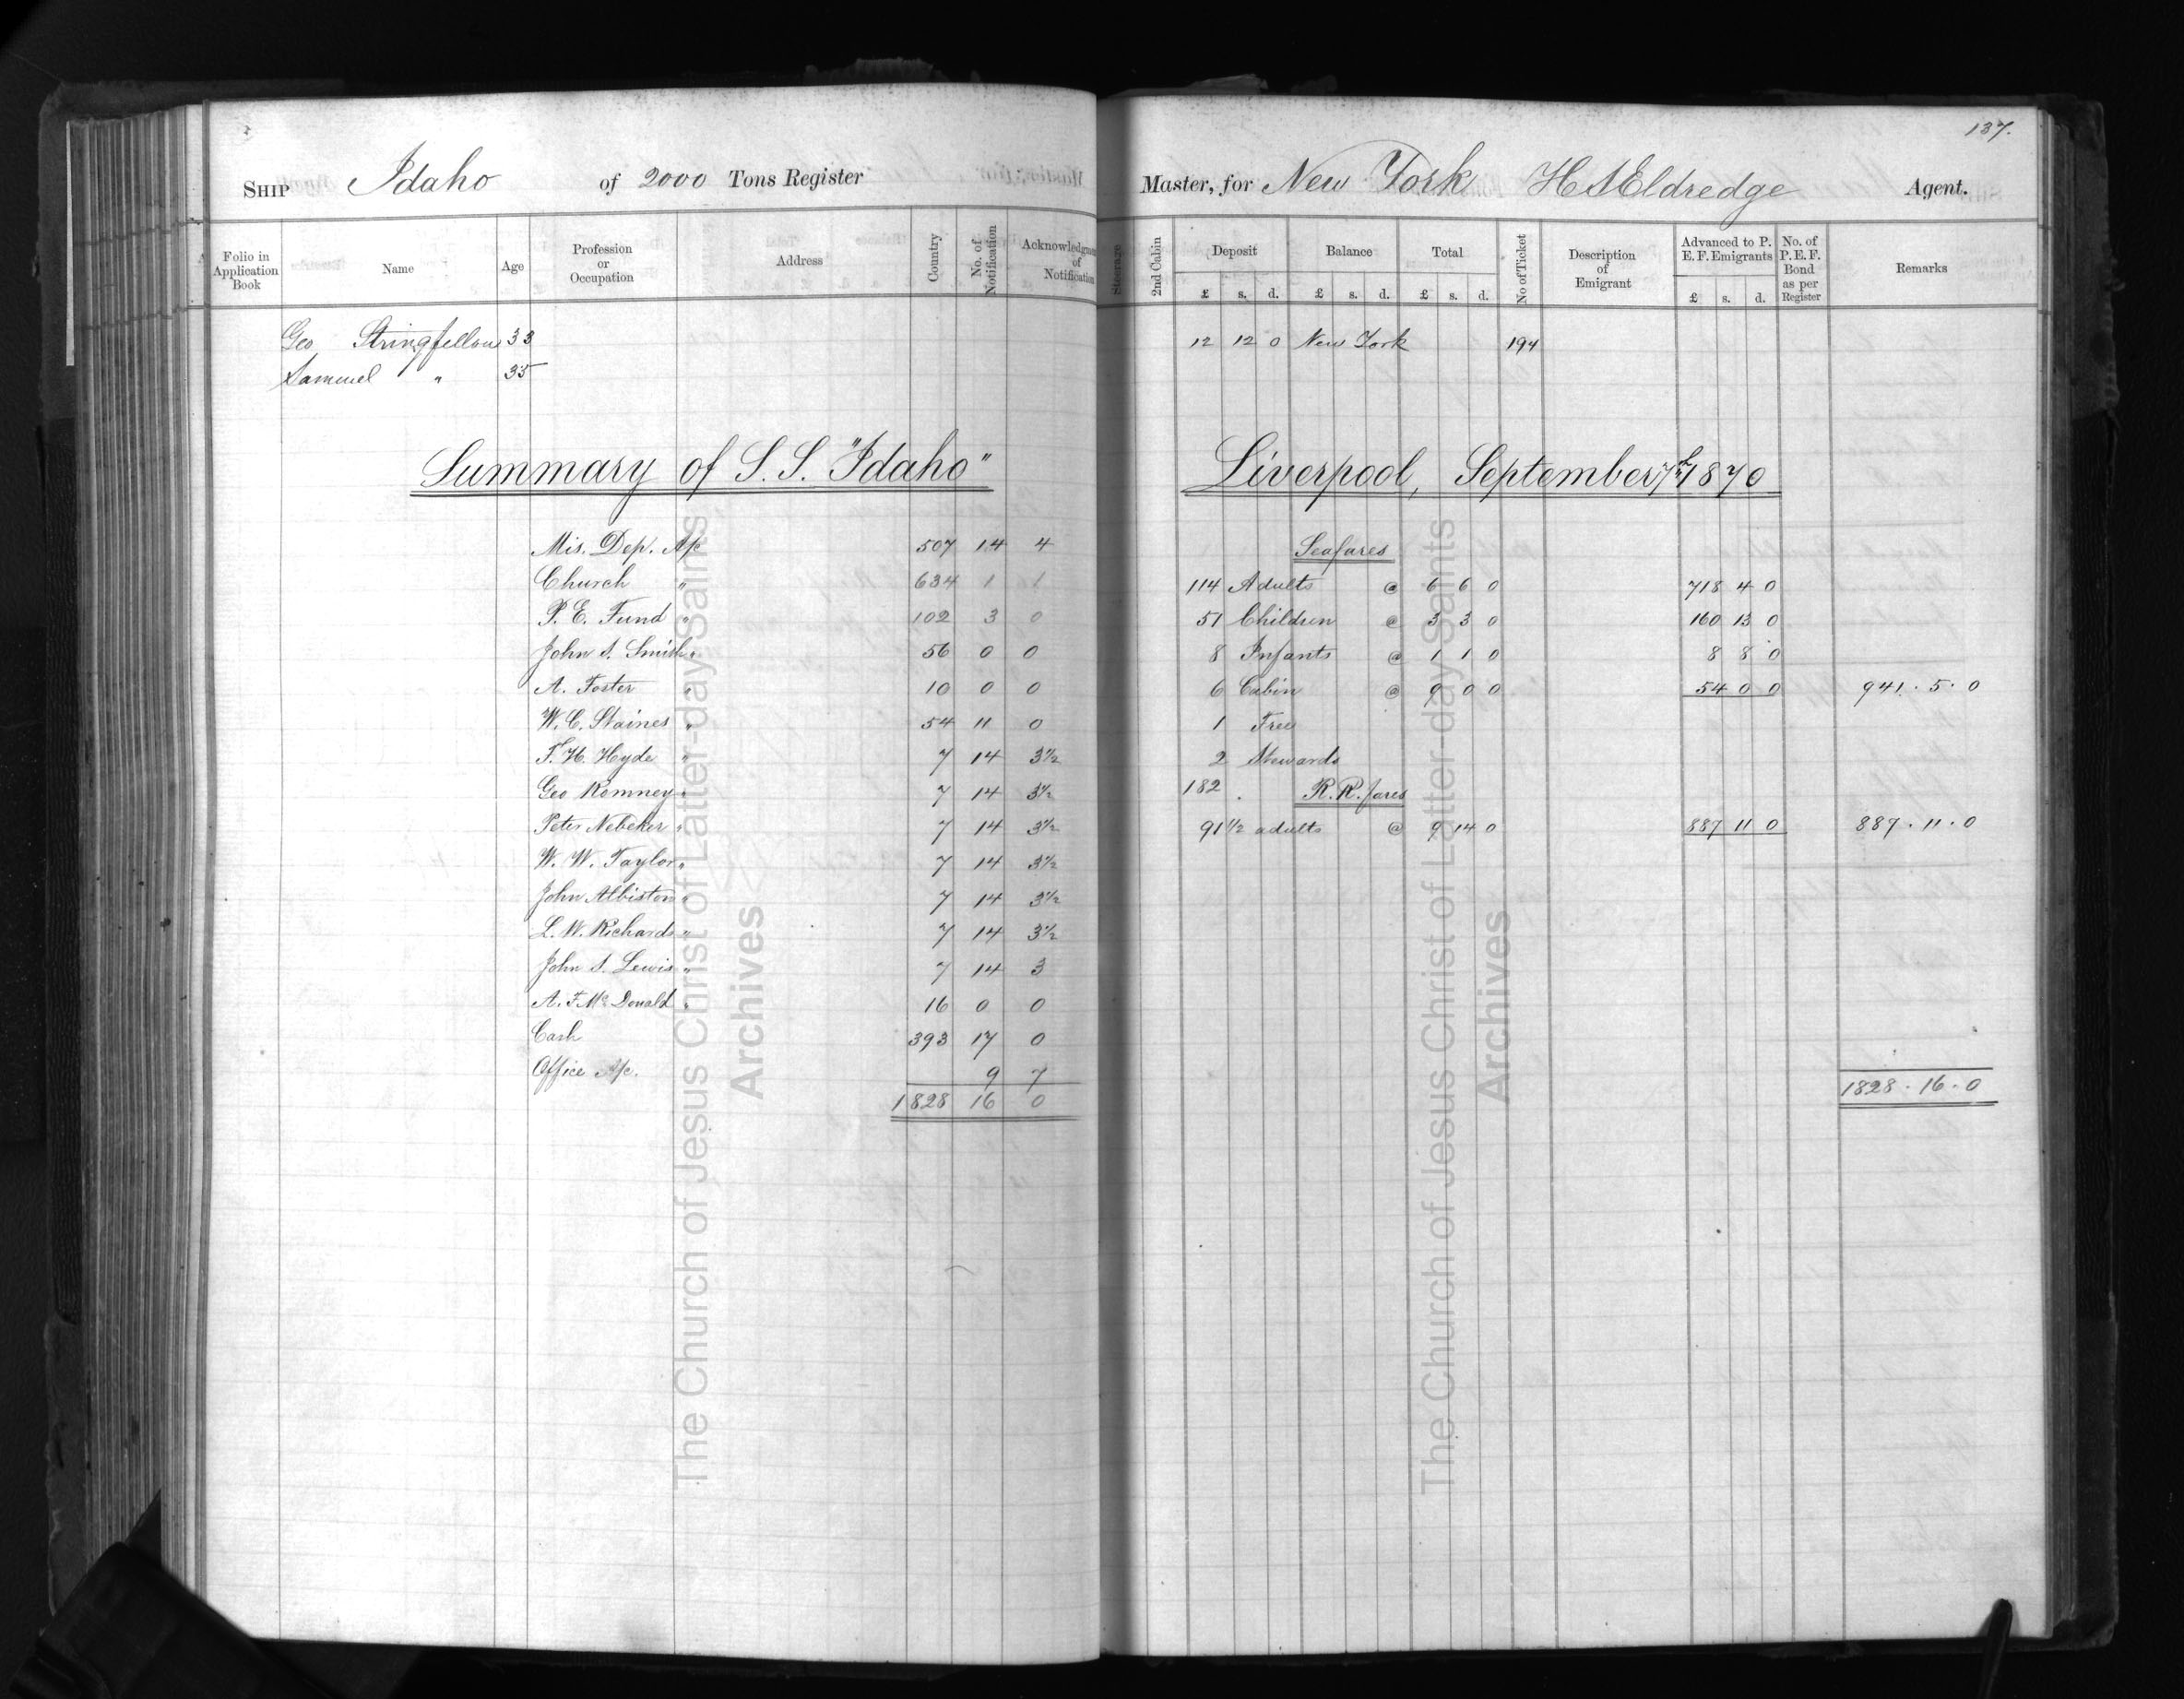 137.
SHIP Idaho of 2000 Tons Register
Folio in Application Book Name Age Profession or Occupation Address Country No. of Notification Acknowledgm of Notification
Geo Stringfellow 33
Samuel " 35
Summary of S.S. "Idaho"
Mis. Dep. A/c 507 14 4
Church " 634 1 1
P. E. Fund " 102 3 0
John S. Smith " 56 0 0
A. Foster " 10 0 0
W. C. Staines " 54 11 0
F. H. Hyde " 7 14 3½
Geo Romney " 7 14 3½
Peter Nebeker " 7 14 3½
W. W. Taylor " 7 14 3½
John Albiston " 7 14 3½
L. W. Richards " 7 14 3½
John S. Lewis " 7 14 3
A. F. McDonald " 16 0 0
Cash 393 17 0
Office A/c. 9 7
1828 16 0
Master, for New York H S Eldredge Agent.
Steerage 2nd Cabin Deposit £ s. d. Balance £ s. d. Total £ s. d. No of Ticket Description of Emigrant Advanced to P. E. F. Emigrants £ s. d. No. of P. E. F. Bond as per Register Remarks
12 12 0 New York 194
Liverpool, September 7th 1870
Seafares
114 Adults @ 6 6 0 718 4 0
51 Children @ 3 3 0 160 13 0
8 Infants @ 1 1 0 8 8 0
6 Cabin @ 9 0 0 54 0 0 941 . 5 . 0
1 Free
2 Stewards
182 . R. R. fares
91 1/2 adults @ 9 14 0 887 11 0 887 . 11 . 0
1828 . 16 . 0
The Church of Jesus Christ of Latter-day Saints
Archives
The Church of Jesus Christ of Latter-day Saints
Archives